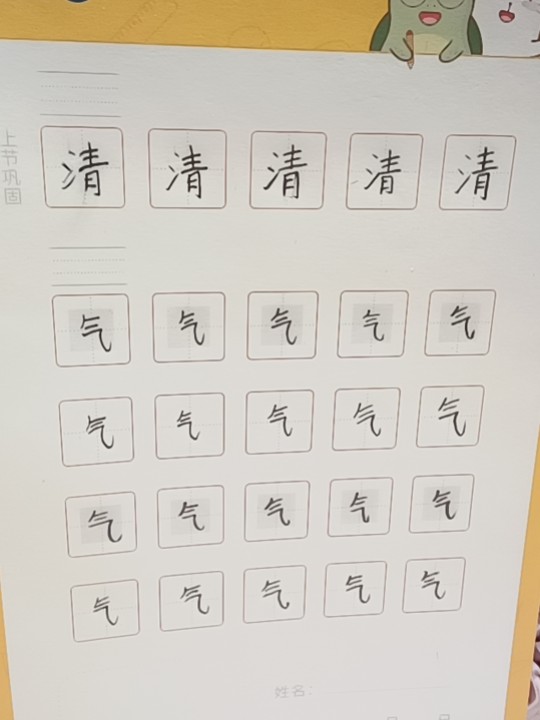 上节巩固
清 清 清 清 清
气 气 气 气 气
气 气 气 气 气
气 气 气 气 气
气 气 气 气 气
姓名：